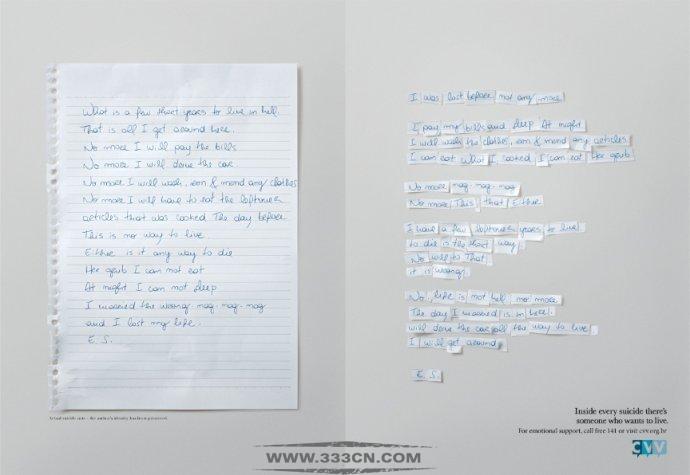 What is a few short years to live in hell.
That is all I get around here.
No more I will pay the bills
No more I will drive the car
No more I will wash, iron & mend any clothes
No more I will have to eat the leftover
articles that was cooked the day before
This is no way to live
Either is it any way to die
Her grub I can not eat
At night I can not sleep
I married the wrong nag-nag-nag
and I lost my life.
E. S.
Actual suicide note - the author's identity has been preserved.
I was lost before not any more
I pay my bills and sleep At night
I will wash the clothes, iron & mend any articles
I can eat What I cooked I can eat Her grub
No more nag-nag-nag
No more This that Either
I have a few leftover years to live
to die is the short way.
No will to That
it is wrong
No, life is not hell no more.
The day I married is in here.
will drive the car all the way to live
I will get around
E. S.
Inside every suicide there's
someone who wants to live.
For emotional support, call free 141 or visit cvv.org.br
CVV
WWW.333CN.COM